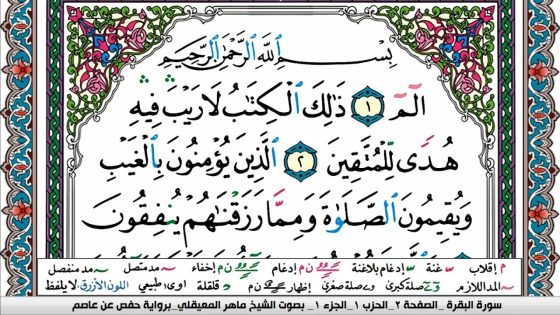 بِسْمِ ٱللَّهِ ٱلرَّحْمَٰنِ ٱلرَّحِيمِ
الٓمٓ ١ ذَٰلِكَ ٱلْكِتَٰبُ لَا رَيْبَ ۛ فِيهِ ۛ
هُدًى لِّلْمُتَّقِينَ ٢ ٱلَّذِينَ يُؤْمِنُونَ بِٱلْغَيْبِ
وَيُقِيمُونَ ٱلصَّلَوٰةَ وَمِمَّا رَزَقْنَٰهُمْ يُنفِقُونَ
م إقلاب غنة إدغام بلاغنة ن م إدغام ن م إخفاء مد متصل مد منفصل
المد اللازم صلة كبرى صلة صغرى إظهار ن م قلقلة اوى طبيعي اللون الأزرق لا يلفظ
سورة البقرة _الصفحة ٢_الحزب ١_الجزء ١_ بصوت الشيخ ماهر المعيقلي_ برواية حفص عن عاصم